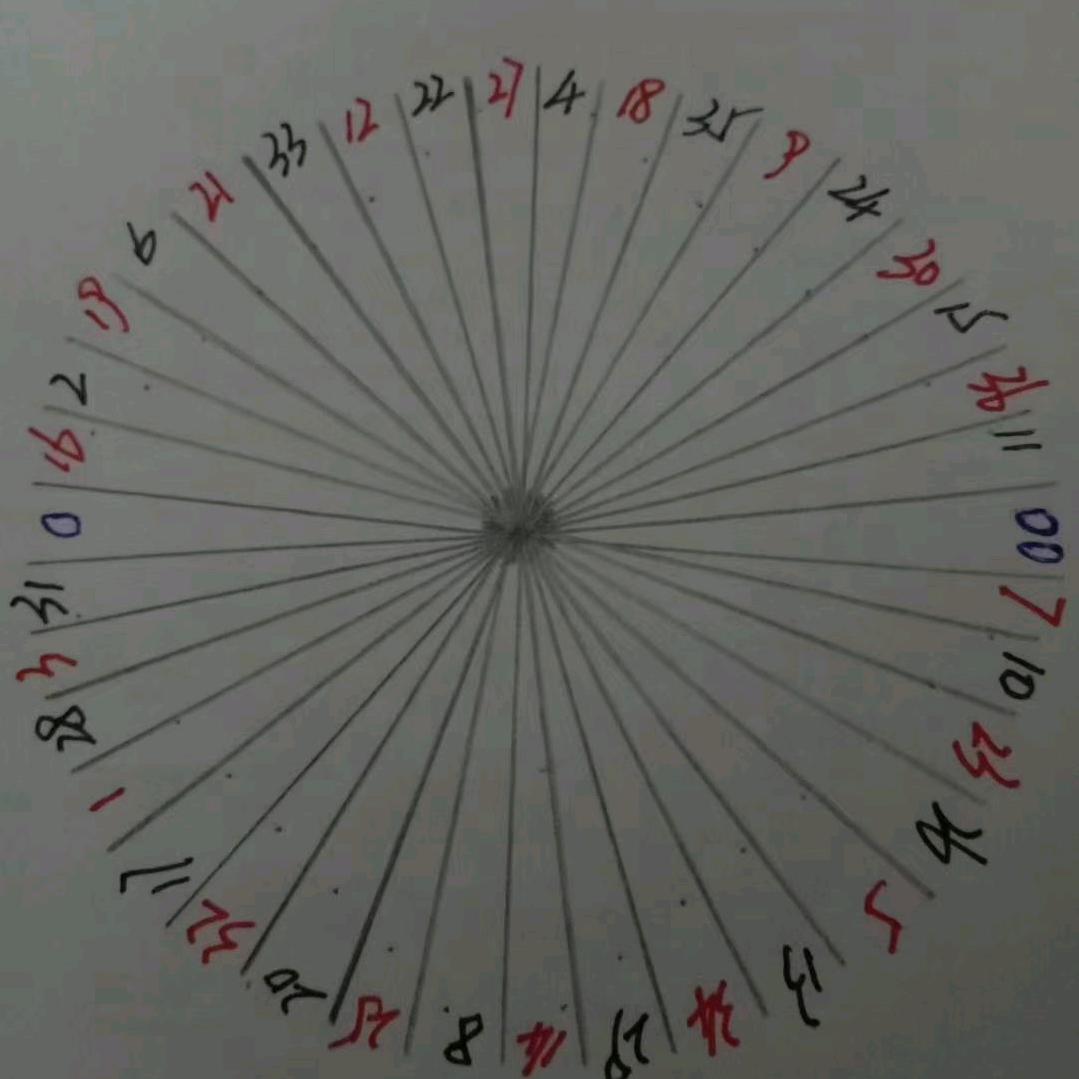 27
4
18
35
9
24
30
15
36
11
00
7
10
23
26
5
13
34
29
14
8
25
20
32
17
1
28
3
31
0
16
2
19
6
21
33
12
22